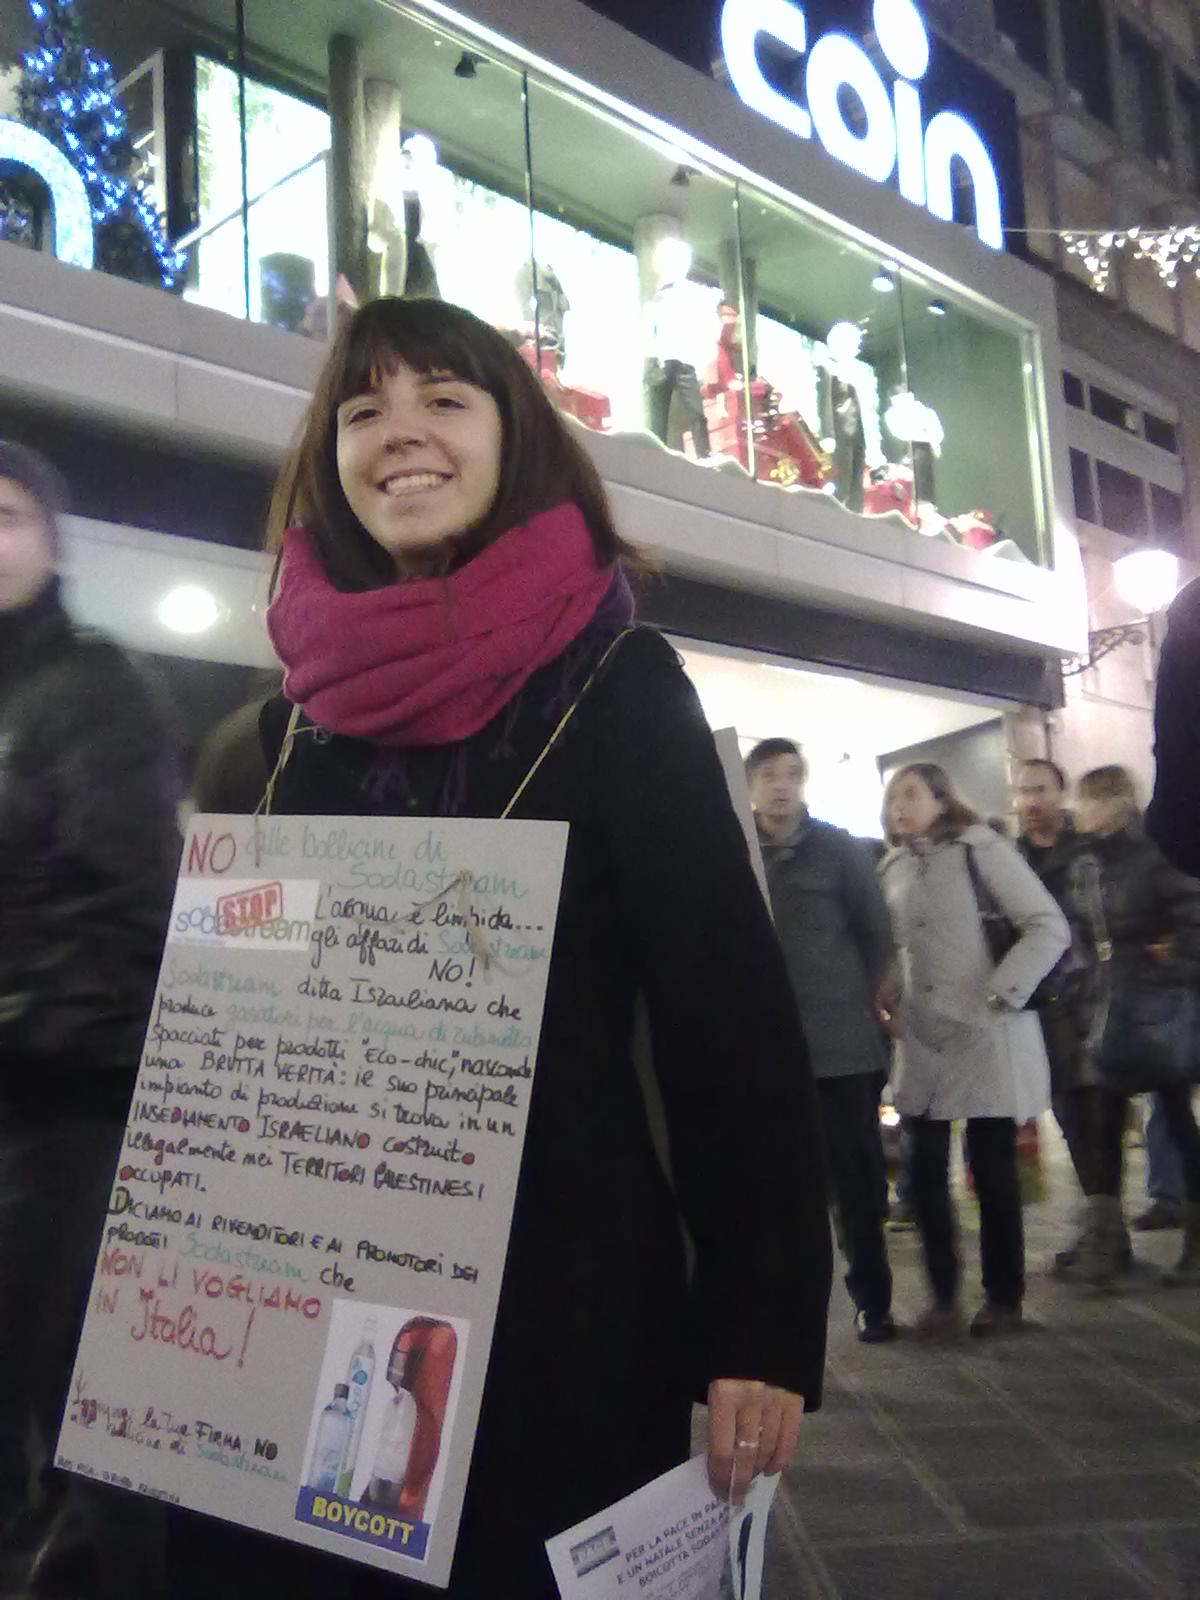 coin
NO alle bollicine di
Sodastream
STOP
sodastream
L'acqua è limpida...
gli affari di Sodastream
NO!
Sodastream ditta Israeliana che
produce gasatori per l'acqua di rubinetto
spacciati per prodotti "Eco-chic", nasconde
una BRUTTA VERITÀ: il suo principale
impianto di produzione si trova in un
INSEDIAMENTO ISRAELIANO costruito
illegalmente nei TERRITORI PALESTINESI
OCCUPATI.
DICIAMO AI RIVENDITORI E AI PROMOTORI DEI
PRODOTTI Sodastream che
NON LI VOGLIAMO
IN Italia!
la tua FIRMA NO
alle bollicine di Sodastream
BOYCOTT
PACE
PER LA PACE IN
E UN NATALE SENZA
BOICOTTA